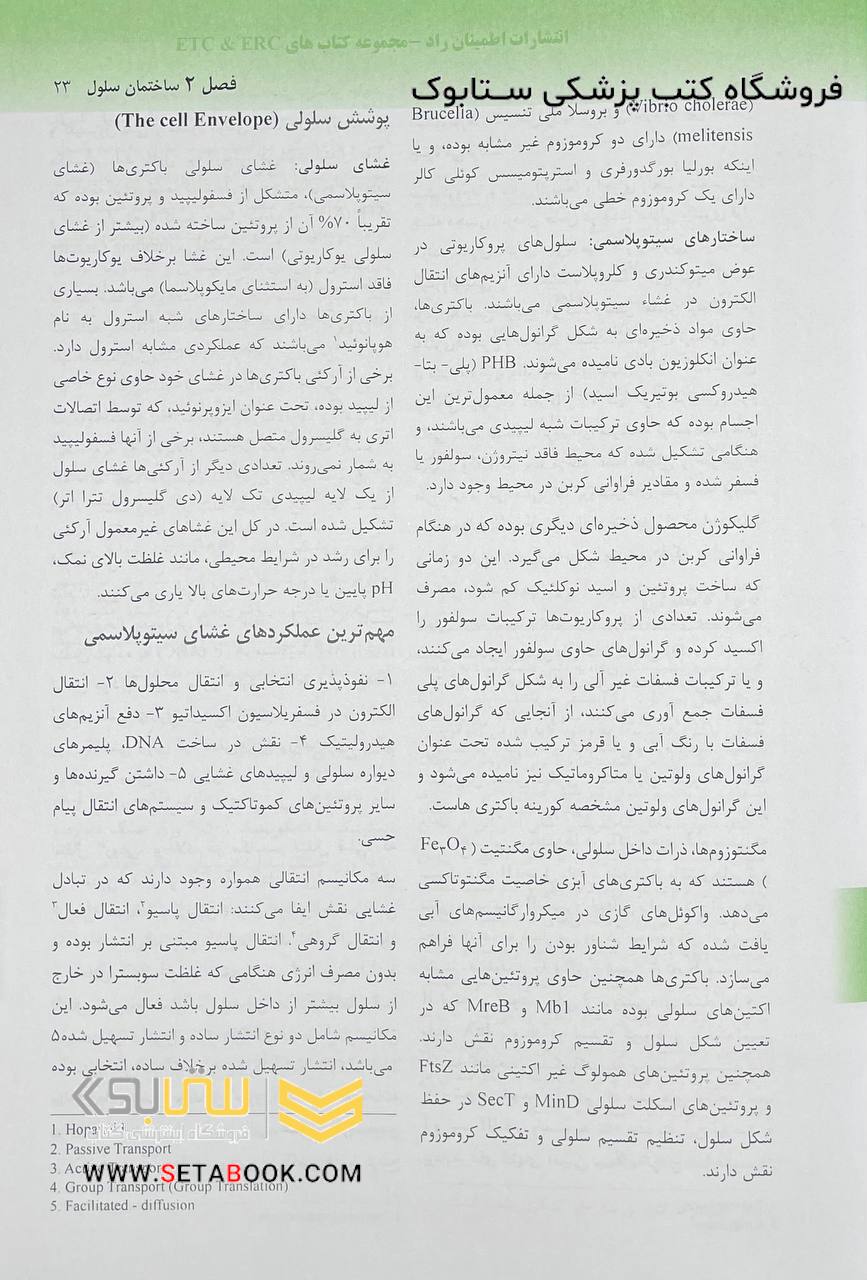 انتشارات اطمینان راد –مجموعه کتاب های ETC & ERC
فروشگاه کتب پزشکی ستابوک
فصل ۲ ساختمان سلول ۲۳
(Vibrio cholerae) و بروسلا ملی تنسیس (Brucella
melitensis) دارای دو کروموزوم غیر مشابه بوده، و یا
اینکه بورلیا بورگدورفری و استرپتومیسس کوئلی کالر
دارای یک کروموزوم خطی می‌باشند.
ساختارهای سیتوپلاسمی: سلول‌های پروکاریوتی در
عوض میتوکندری و کلروپلاست دارای آنزیم‌های انتقال
الکترون در غشاء سیتوپلاسمی می‌باشند. باکتری‌ها،
حاوی مواد ذخیره‌ای به شکل گرانول‌هایی بوده که به
عنوان انکلوزیون بادی نامیده می‌شوند. PHB (پلی- بتا-
هیدروکسی بوتیریک اسید) از جمله معمول‌ترین این
اجسام بوده که حاوی ترکیبات شبه لیپیدی می‌باشند، و
هنگامی تشکیل شده که محیط فاقد نیتروژن، سولفور یا
فسفر شده و مقادیر فراوانی کربن در محیط وجود دارد.
گلیکوژن محصول ذخیره‌ای دیگری بوده که در هنگام
فراوانی کربن در محیط شکل می‌گیرد. این دو زمانی
که ساخت پروتئین و اسید نوکلئیک کم شود، مصرف
می‌شوند. تعدادی از پروکاریوت‌ها ترکیبات سولفور را
اکسید کرده و گرانول‌های حاوی سولفور ایجاد می‌کنند،
و یا ترکیبات فسفات غیر آلی را به شکل گرانول‌های پلی
فسفات جمع آوری می‌کنند، از آنجایی که گرانول‌های
فسفات با رنگ آبی و یا قرمز ترکیب شده تحت عنوان
گرانول‌های ولوتین یا متاکروماتیک نیز نامیده می‌شود و
این گرانول‌های ولوتین مشخصه کورینه باکتری هاست.
مگنتوزوم‌ها، ذرات داخل سلولی، حاوی مگنتیت ( Fe۳O۴
) هستند که به باکتری‌های آبزی خاصیت مگنتوتاکسی
می‌دهد. واکوئل‌های گازی در میکروارگانیسم‌های آبی
یافت شده که شرایط شناور بودن را برای آنها فراهم
می‌سازد. باکتری‌ها همچنین حاوی پروتئین‌هایی مشابه
اکتین‌های سلولی بوده مانند Mb1 و MreB که در
تعیین شکل سلول و تقسیم کروموزوم نقش دارند.
همچنین پروتئین‌های همولوگ غیر اکتینی مانند FtsZ
و پروتئین‌های اسکلت سلولی MinD و SecT در حفظ
شکل سلول، تنظیم تقسیم سلولی و تفکیک کروموزوم
نقش دارند.
پوشش سلولی (The cell Envelope)
غشای سلولی: غشای سلولی باکتری‌ها (غشای
سیتوپلاسمی)، متشکل از فسفولیپید و پروتئین بوده که
تقریباً ۷۰% آن از پروتئین ساخته شده (بیشتر از غشای
سلولی یوکاریوتی) است. این غشا برخلاف یوکاریوت‌ها
فاقد استرول (به استثنای مایکوپلاسما) می‌باشد. بسیاری
از باکتری‌ها دارای ساختارهای شبه استرول به نام
هوپانوئید۱ می‌باشند که عملکردی مشابه استرول دارد.
برخی از آرکئی باکتری‌ها در غشای خود حاوی نوع خاصی
از لیپید بوده، تحت عنوان ایزوپرنوئید، که توسط اتصالات
اتری به گلیسرول متصل هستند، برخی از آنها فسفولیپید
به شمار نمی‌روند. تعدادی دیگر از آرکئی‌ها غشای سلول
از یک لایه لیپیدی تک لایه (دی گلیسرول تترا اتر)
تشکیل شده است. در کل این غشاهای غیرمعمول آرکئی
را برای رشد در شرایط محیطی، مانند غلظت بالای نمک،
pH پایین یا درجه حرارت‌های بالا یاری می‌کنند.
مهم‌ترین عملکردهای غشای سیتوپلاسمی
۱- نفوذپذیری انتخابی و انتقال محلول‌ها ۲- انتقال
الکترون در فسفریلاسیون اکسیداتیو ۳- دفع آنزیم‌های
هیدرولیتیک ۴- نقش در ساخت DNA، پلیمرهای
دیواره سلولی و لیپیدهای غشایی ۵- داشتن گیرنده‌ها و
سایر پروتئین‌های کموتاکتیک و سیستم‌های انتقال پیام
حسی.
سه مکانیسم انتقالی همواره وجود دارند که در تبادل
غشایی نقش ایفا می‌کنند: انتقال پاسیو۲، انتقال فعال۳
و انتقال گروهی۴. انتقال پاسیو مبتنی بر انتشار بوده و
بدون مصرف انرژی هنگامی که غلظت سوبسترا در خارج
از سلول بیشتر از داخل سلول باشد فعال می‌شود. این
مکانیسم شامل دو نوع انتشار ساده و انتشار تسهیل شده۵
می‌باشد، انتشار تسهیل شده برخلاف ساده، انتخابی بوده
ستابوک
فروشگاه اینترنتی کتاب
1. Hopanoid
2. Passive Transport
3. Active Transport
WWW.SETABOOK.COM
4. Group Transport (Group Translation)
5. Facilitated - diffusion